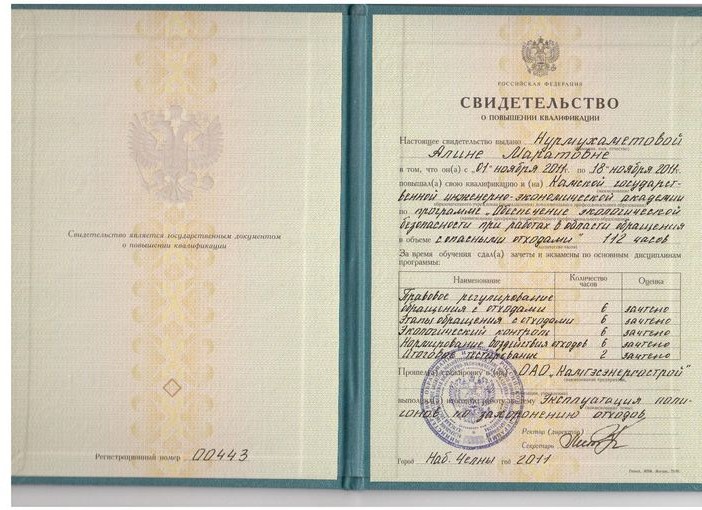 Свидетельство является государственным документом
о повышении квалификации
Регистрационный номер 00443
РОССИЙСКАЯ ФЕДЕРАЦИЯ
СВИДЕТЕЛЬСТВО
О ПОВЫШЕНИИ КВАЛИФИКАЦИИ
Настоящее свидетельство выдано Нурмухаметовой
Алине Маратовне
в том, что он(а) с „01" ноября 2011г. по „18" ноября 2011г.
повышал(а) свою квалификацию в (на) Камской государст-
венной инженерно-экономической академии
по программе „Обеспечение экологической
безопасности при работах в области обращения
в объеме с опасными отходами" 112 часов
За время обучения сдал(а) зачеты и экзамены по основным дисциплинам
программы:
Наименование Количество часов Оценка
Правовое регулирование
обращения с отходами 6 зачтено
Этапы обращения с отходами 6 зачтено
Экологический контроль 6 зачтено
Нормирование воздействия отходов 6 зачтено
Итоговое тестирование 2 зачтено
Прошел(а) стажировку в (на) ОАО „Камгэсэнергострой"
выполнил(а) итоговую работу на тему Эксплуатация поли-
гонов по захоронению отходов
Ректор (директор)
Секретарь
Город Наб. Челны год 2011